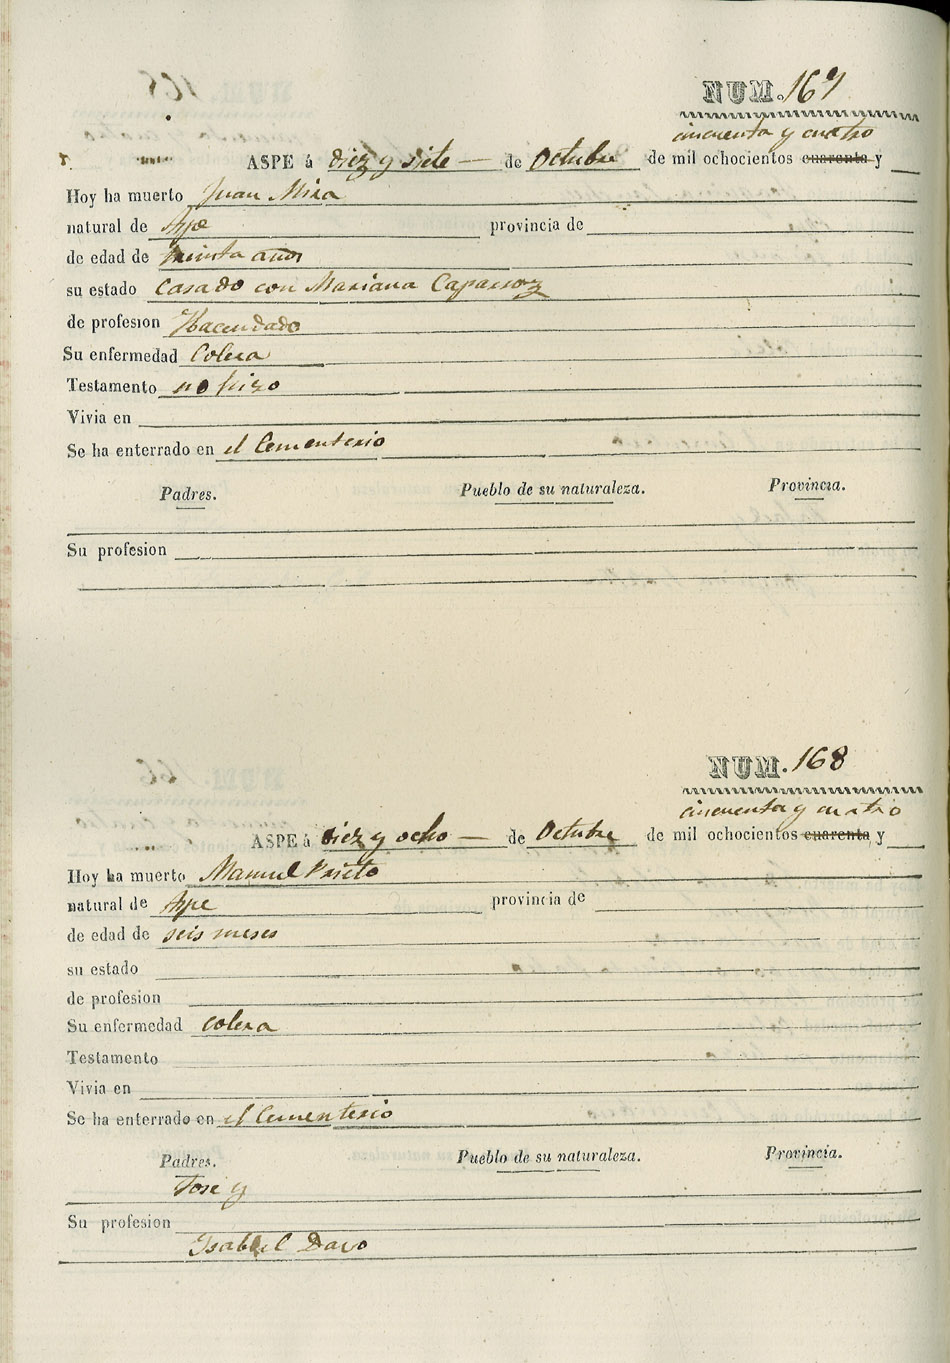 NUM. 167
cincuenta y cuatro
ASPE á diez y siete — de Octubre de mil ochocientos cuarenta y
Hoy ha muerto Juan Mira
natural de Aspe provincia de
de edad de treinta años
su estado Casado con Mariana Caparroz
de profesion Hacendado
Su enfermedad Colera
Testamento no hizo
Vivia en
Se ha enterrado en el Cementerio
Padres. Pueblo de su naturaleza. Provincia.
Su profesion
NUM. 168
cincuenta y cuatro
ASPE á diez y ocho — de Octubre de mil ochocientos cuarenta y
Hoy ha muerto Manuel Prieto
natural de Aspe provincia de
de edad de seis meses
su estado
de profesion
Su enfermedad colera
Testamento
Vivia en
Se ha enterrado en el Cementerio
Padres. Pueblo de su naturaleza. Provincia.
Jose y
Su profesion
Isabel Davo